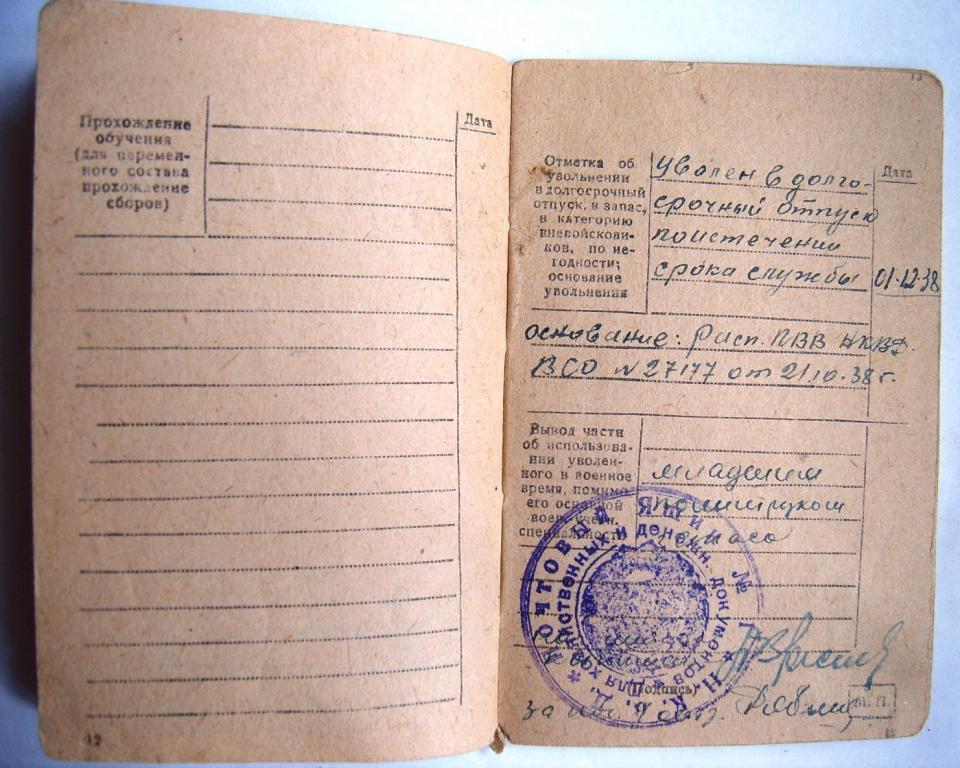 Прохождение
обучения
(для перемен-
ного состава
прохождение
сборов)
Дата
12
13
Отметка об
увольнении
в долгосрочный
отпуск, в запас,
в категорию
вневойскови-
ков, по не-
годности;
основание
увольнения
Дата
уволен в долго-
срочный отпуск
по истечении
срока службы
01.12.38
основание: Расп. ПВВ НКВД.
ВСО № 27177 от 21.10.38 г.
Вывод части
об использова-
нии уволен-
ного в военное
время, помимо
его основной
воен. учетн.
специальности
младшим
политруком
запаса
ПОЧТОВЫЙ ЯЩИК №
Н.К.В.Д.
Для хозяйственных и денежн. документов
(Подпись)
М. П.